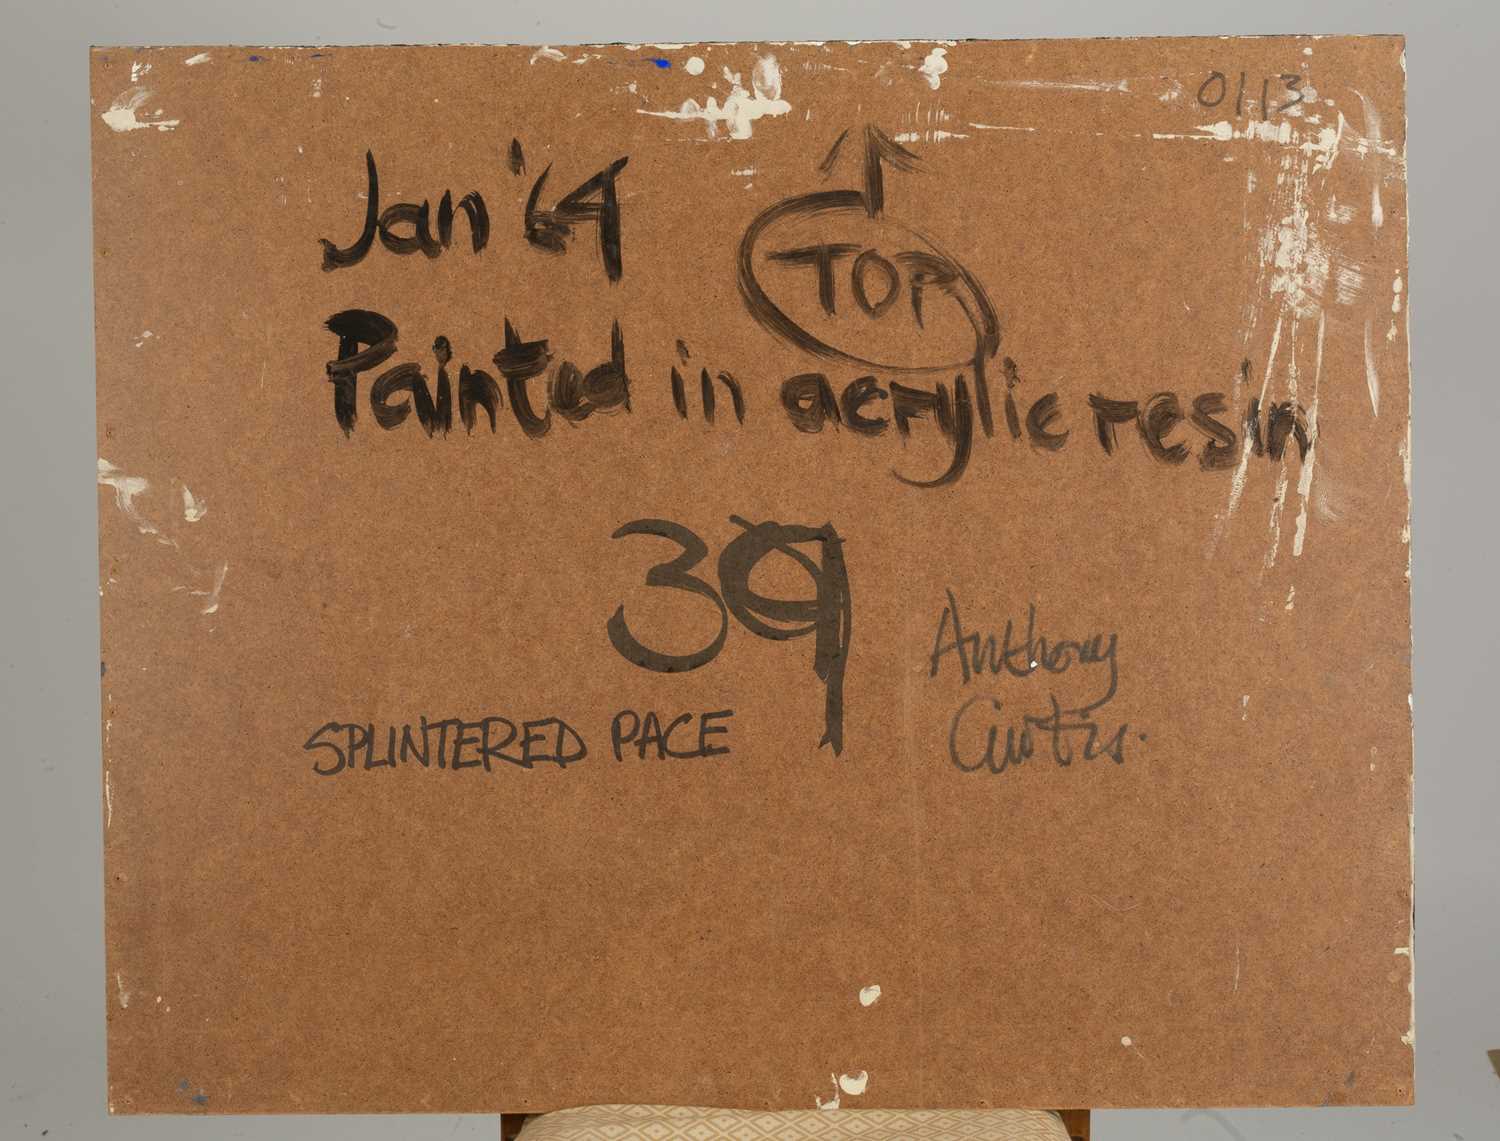 0113
Jan '64
TOP
Painted in acrylic resin
39
Anthony
Curtis.
SPLINTERED PACE